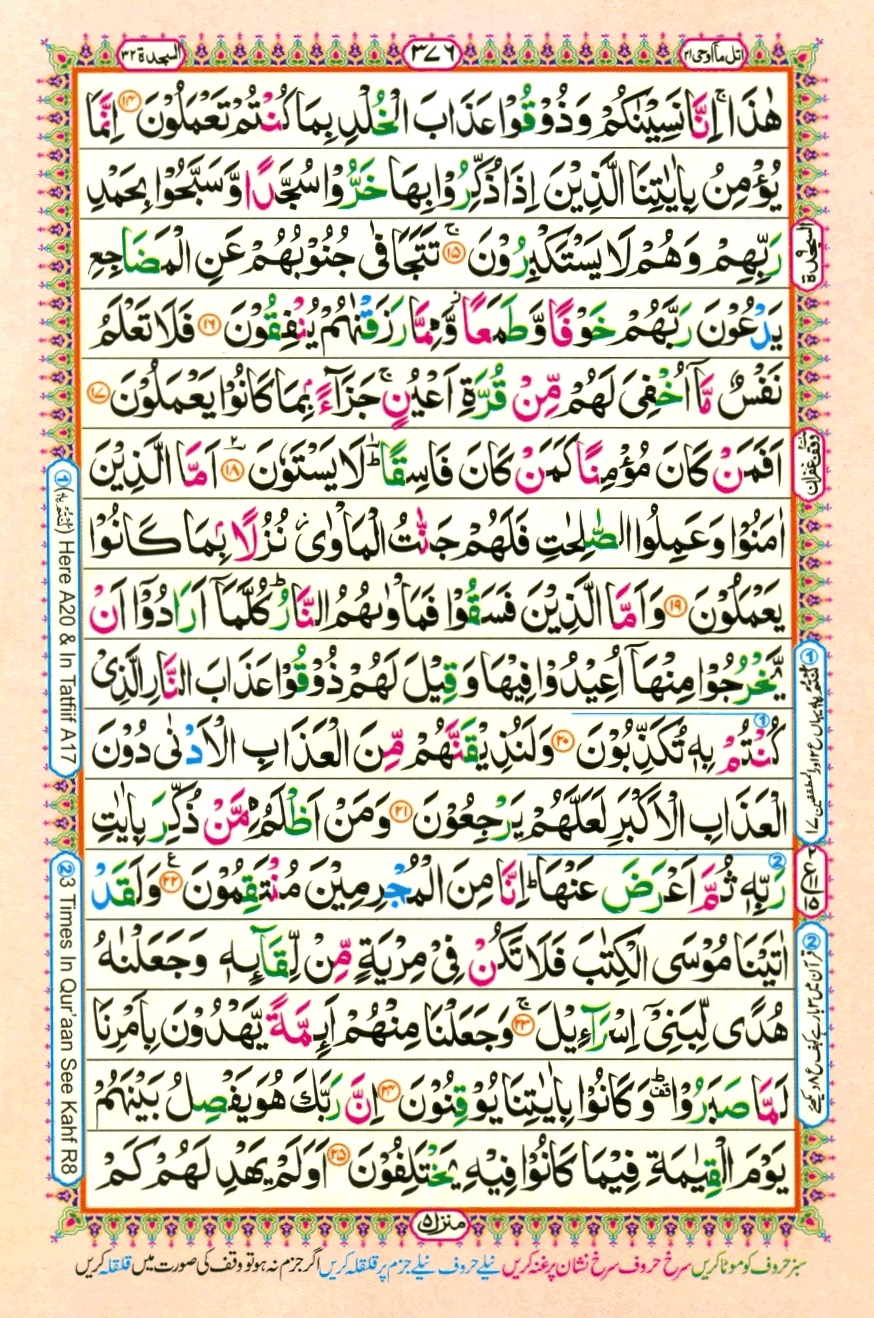 السجدة ٣٢
٣٧٦
اتل مآ اوحی ٢١
هٰذَا ۚ اِنَّا نَسِيْنٰكُمْ وَذُوْقُوْا عَذَابَ الْخُلْدِ بِمَا كُنْتُمْ تَعْمَلُوْنَ ١٤ اِنَّمَا
يُؤْمِنُ بِاٰيٰتِنَا الَّذِيْنَ اِذَا ذُكِّرُوْا بِهَا خَرُّوْا سُجَّدًا وَّسَبَّحُوْا بِحَمْدِ
رَبِّهِمْ وَهُمْ لَا يَسْتَكْبِرُوْنَ ١٥ تَتَجَافٰى جُنُوْبُهُمْ عَنِ الْمَضَاجِعِ
يَدْعُوْنَ رَبَّهُمْ خَوْفًا وَّطَمَعًا وَّمِمَّا رَزَقْنٰهُمْ يُنْفِقُوْنَ ١٦ فَلَا تَعْلَمُ
نَفْسٌ مَّاۤ اُخْفِيَ لَهُمْ مِّنْ قُرَّةِ اَعْيُنٍ ۚ جَزَآءًۢ بِمَا كَانُوْا يَعْمَلُوْنَ ١٧
اَفَمَنْ كَانَ مُؤْمِنًا كَمَنْ كَانَ فَاسِقًا ؕ لَا يَسْتَوٗنَ ١٨ اَمَّا الَّذِيْنَ
اٰمَنُوْا وَعَمِلُوا الصّٰلِحٰتِ فَلَهُمْ جَنّٰتُ الْمَاْوٰى ز نُزُلًاۢ بِمَا كَانُوْا
يَعْمَلُوْنَ ١٩ وَاَمَّا الَّذِيْنَ فَسَقُوْا فَمَاْوٰىهُمُ النَّارُ ؕ كُلَّمَاۤ اَرَادُوْۤا اَنْ
يَّخْرُجُوْا مِنْهَاۤ اُعِيْدُوْا فِيْهَا وَقِيْلَ لَهُمْ ذُوْقُوْا عَذَابَ النَّارِ الَّذِيْ
كُنْتُمْ بِهٖ تُكَذِّبُوْنَ ٢٠ وَلَنُذِيْقَنَّهُمْ مِّنَ الْعَذَابِ الْاَدْنٰى دُوْنَ
الْعَذَابِ الْاَكْبَرِ لَعَلَّهُمْ يَرْجِعُوْنَ ٢١ وَمَنْ اَظْلَمُ مِمَّنْ ذُكِّرَ بِاٰيٰتِ
رَبِّهٖ ثُمَّ اَعْرَضَ عَنْهَا ؕ اِنَّا مِنَ الْمُجْرِمِيْنَ مُنْتَقِمُوْنَ ٢٢ وَلَقَدْ
اٰتَيْنَا مُوْسَى الْكِتٰبَ فَلَا تَكُنْ فِيْ مِرْيَةٍ مِّنْ لِّقَآئِهٖ وَجَعَلْنٰهُ
هُدًى لِّبَنِيْۤ اِسْرَآءِيْلَ ٢٣ وَجَعَلْنَا مِنْهُمْ اَئِمَّةً يَّهْدُوْنَ بِاَمْرِنَا
لَمَّا صَبَرُوْا وَكَانُوْا بِاٰيٰتِنَا يُوْقِنُوْنَ ٢٤ اِنَّ رَبَّكَ هُوَ يَفْصِلُ بَيْنَهُمْ
يَوْمَ الْقِيٰمَةِ فِيْمَا كَانُوْا فِيْهِ يَخْتَلِفُوْنَ ٢٥ اَوَلَمْ يَهْدِ لَهُمْ كَمْ
السجدة
وقف غفران
① Here A20 & In Tatfiif A17
② 3 Times In Qur'aan See Kahf R8
منزل ٥
سبز حروف کو موٹا کریں سرخ حروف سرخ نشان پر غنہ کریں نیلے حروف نیلے جزم پر قلقلہ کریں اگر جزم نہ ہو تو وقف کی صورت میں قلقلہ کریں